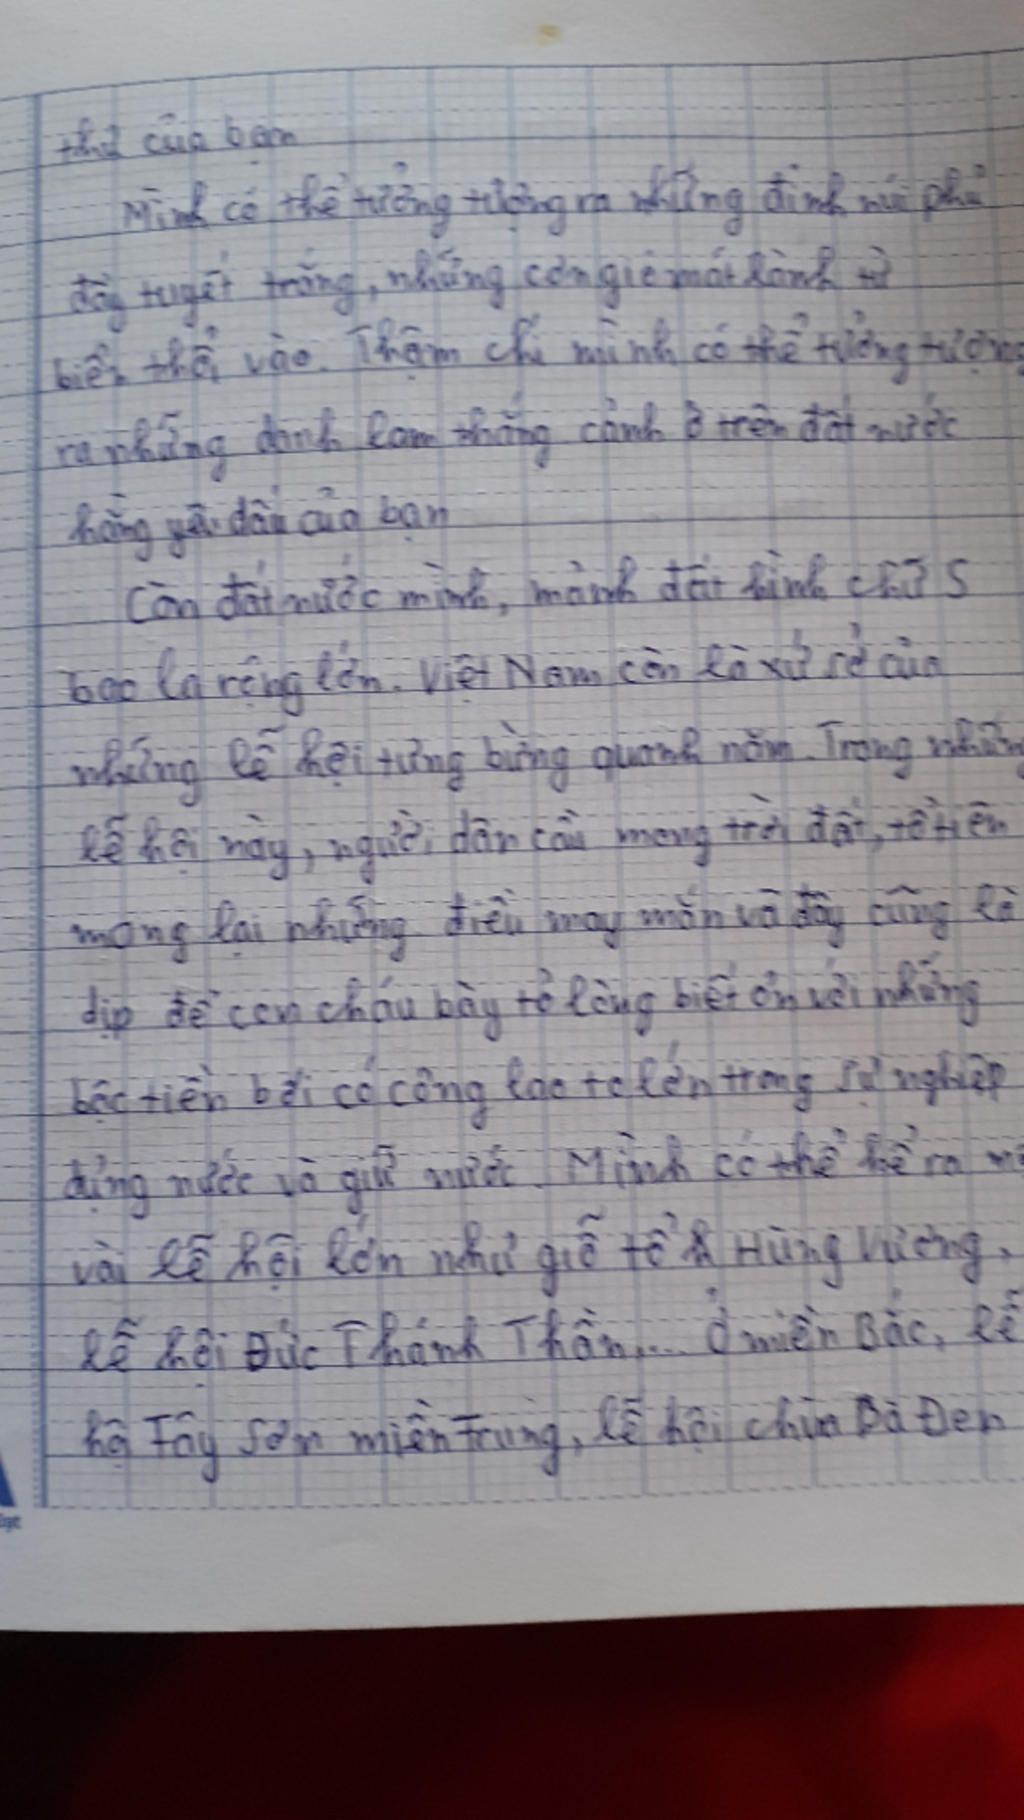 thư của bạn
Mình có thể tưởng tượng ra những đỉnh núi phủ
đầy tuyết trắng, những cơn gió mát lành từ
biển thổi vào. Thậm chí mình có thể tưởng tượng
ra những danh lam thắng cảnh ở trên đất nước
hằng yêu dấu của bạn
Còn đất nước mình, mảnh đất hình chữ S
bao la rộng lớn. Việt Nam còn là xứ sở của
những lễ hội tưng bừng quanh năm. Trong những
lễ hội này, người dân cầu mong trời đất, tổ tiên
mang lại những điều may mắn và đây cũng là
dịp để con cháu bày tỏ lòng biết ơn với những
bậc tiền bối có công lao to lớn trong sự nghiệp
dựng nước và giữ nước. Mình có thể kể ra
vài lễ hội lớn như giỗ tổ Hùng Vương,
lễ hội Đức Thánh Thần.... Ở miền Bắc, lễ
hộ Tây Sơn miền Trung, lễ hội chùa Bà Đen